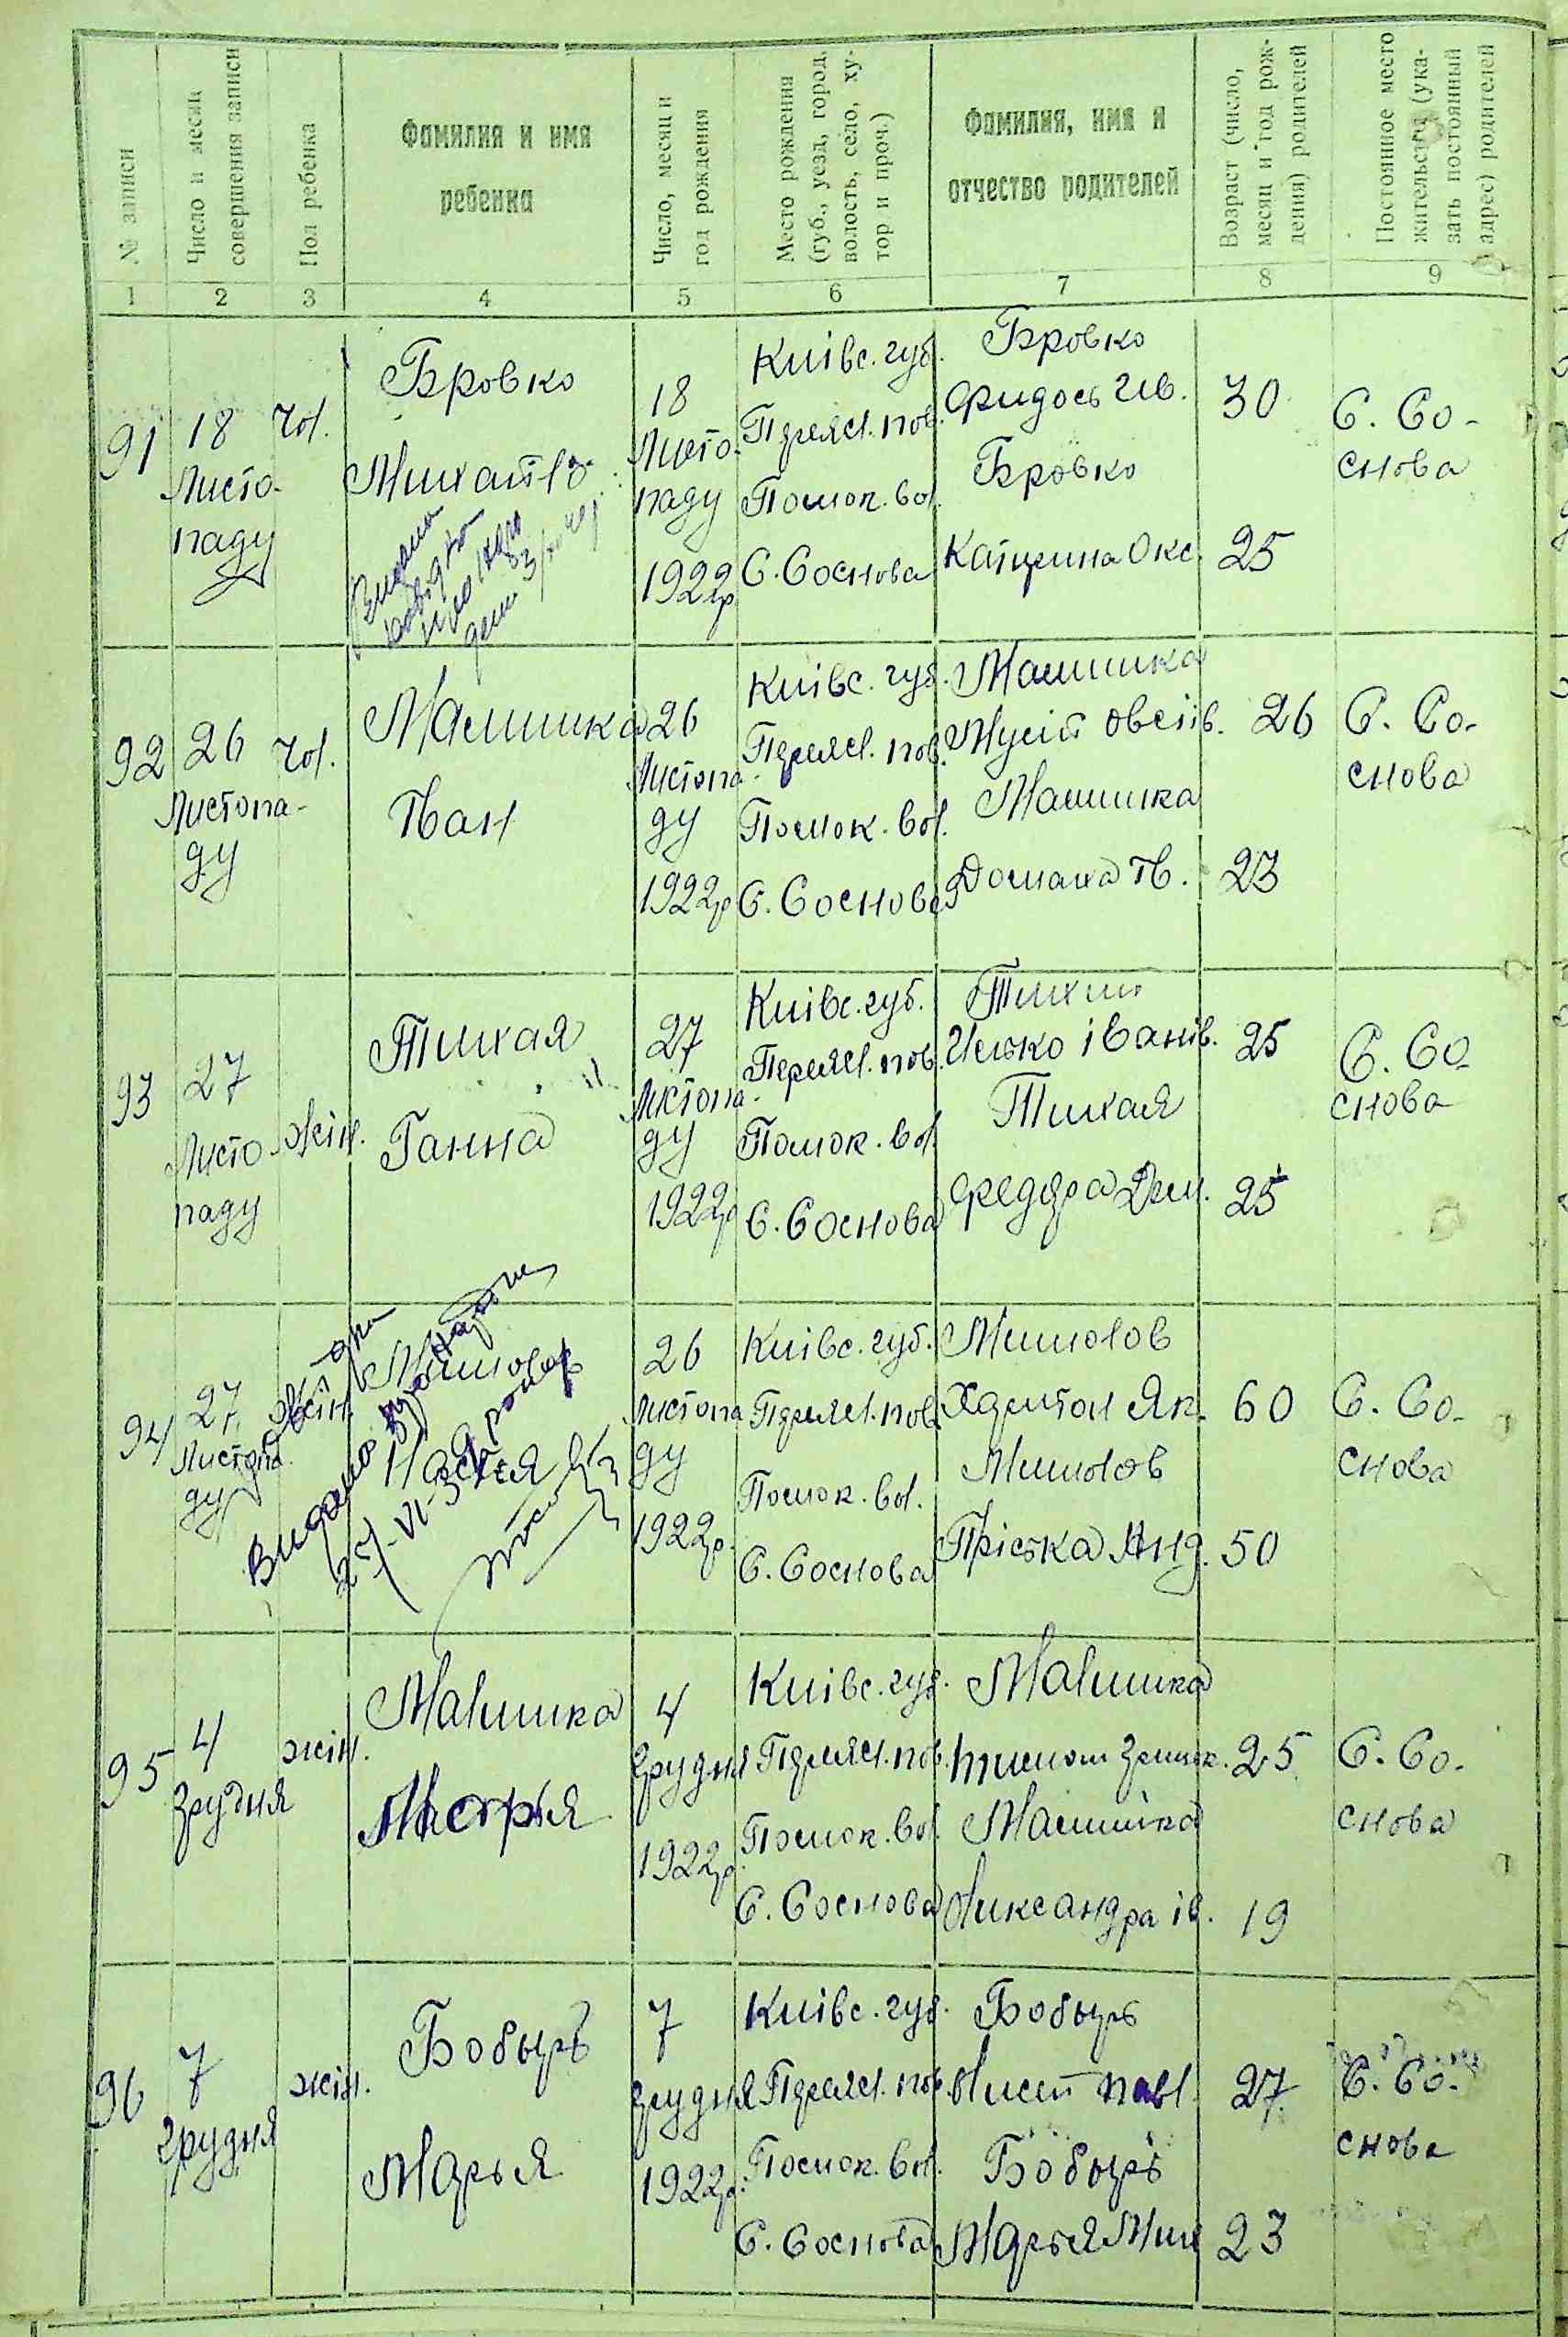 № записи
Число и месяц
совершения записи
Пол ребенка
Фамилия и имя
ребенка
Число, месяц и
год рождения
Место рождения
(губ., уезд, город,
волость, село, ху-
тор и проч.)
Фамилия, имя и
отчество родителей
Возраст (число,
месяц и год рож-
дения) родителей
Постоянное место
жительства (ука-
зать постоянный
адрес) родителей
1 2 3 4 5 6 7 8 9
91
18
Листо-
паду
чол.
Бровко
Михайло
Видана
18
Листо-
паду
1922р
Київс. губ.
Переясл. пов.
Помок. вол.
С. Соснова
Бровко
Фидось Ив.
Бровко
Катерина Окс.
30
25
С. Со-
снова
92
26
Листопа-
ду
чол.
Малишка
Іван
26
Листопа-
ду
1922р
Київс. губ.
Переясл. пов.
Помок. вол.
С. Соснова
Малишка
Мусій Овсіїв.
Малишка
Домаха Ів.
26
23
С. Со-
снова
93
27
Листо-
паду
жін.
Тихая
Ганна
27
Листопа-
ду
1922р
Київс. губ.
Переясл. пов.
Помок. вол.
С. Соснова
Тихий
Исько Іванів.
Тихая
Федора Дем.
25
25
С. Со-
снова
94
27
Листопа-
ду
жін.
Настя
Видано
26
Листопа
ду
1922р.
Київс. губ.
Переясл. пов.
Помок. вол.
С. Соснова
Харитон Як.
Пріська Анд.
60
50
С. Со-
снова
95
4
грудня
жін.
Малишка
Марья
4
грудня
1922р.
Київс. губ.
Переясл. пов.
Помок. вол.
С. Соснова
Малишка
Малишка
Олександра ів.
25
19
С. Со-
снова
96
7
грудня
жін.
Бобырь
Марья
7
грудня
1922р.
Київс. губ.
Переясл. пов.
Помок. вол.
С. Соснова
Бобырь
Павл.
Бобырь
Марья Мих
27
23
С. Со-
снова